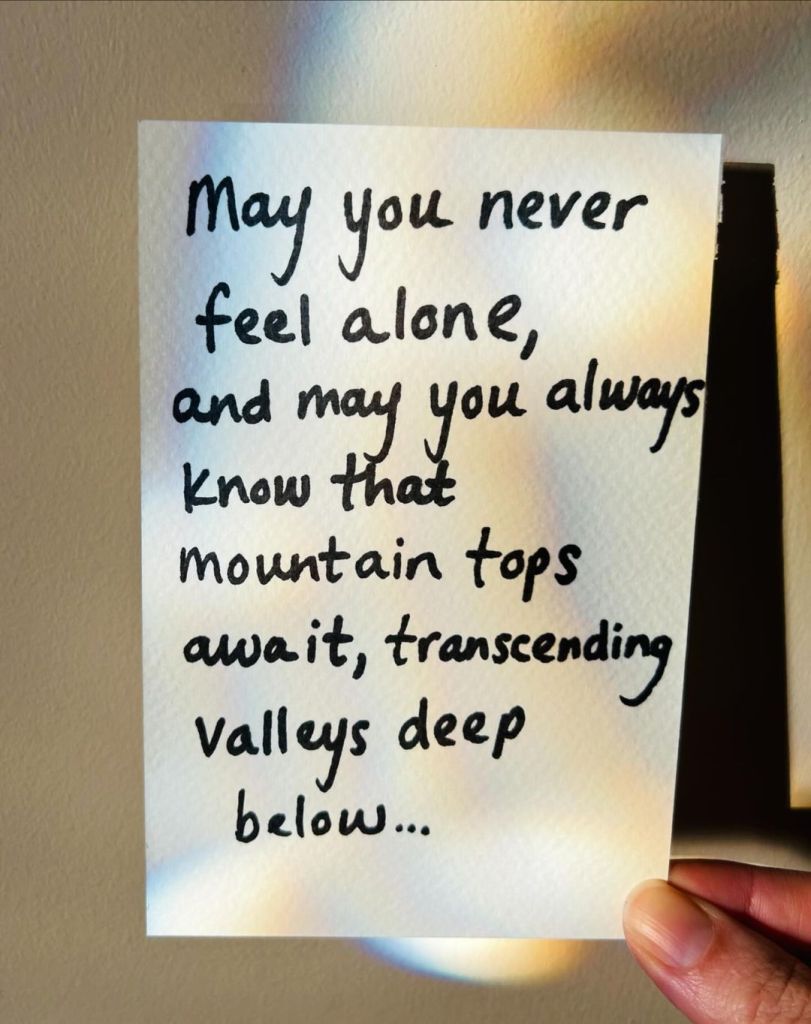 May you never
feel alone,
and may you always
know that
mountain tops
await, transcending
valleys deep
below...